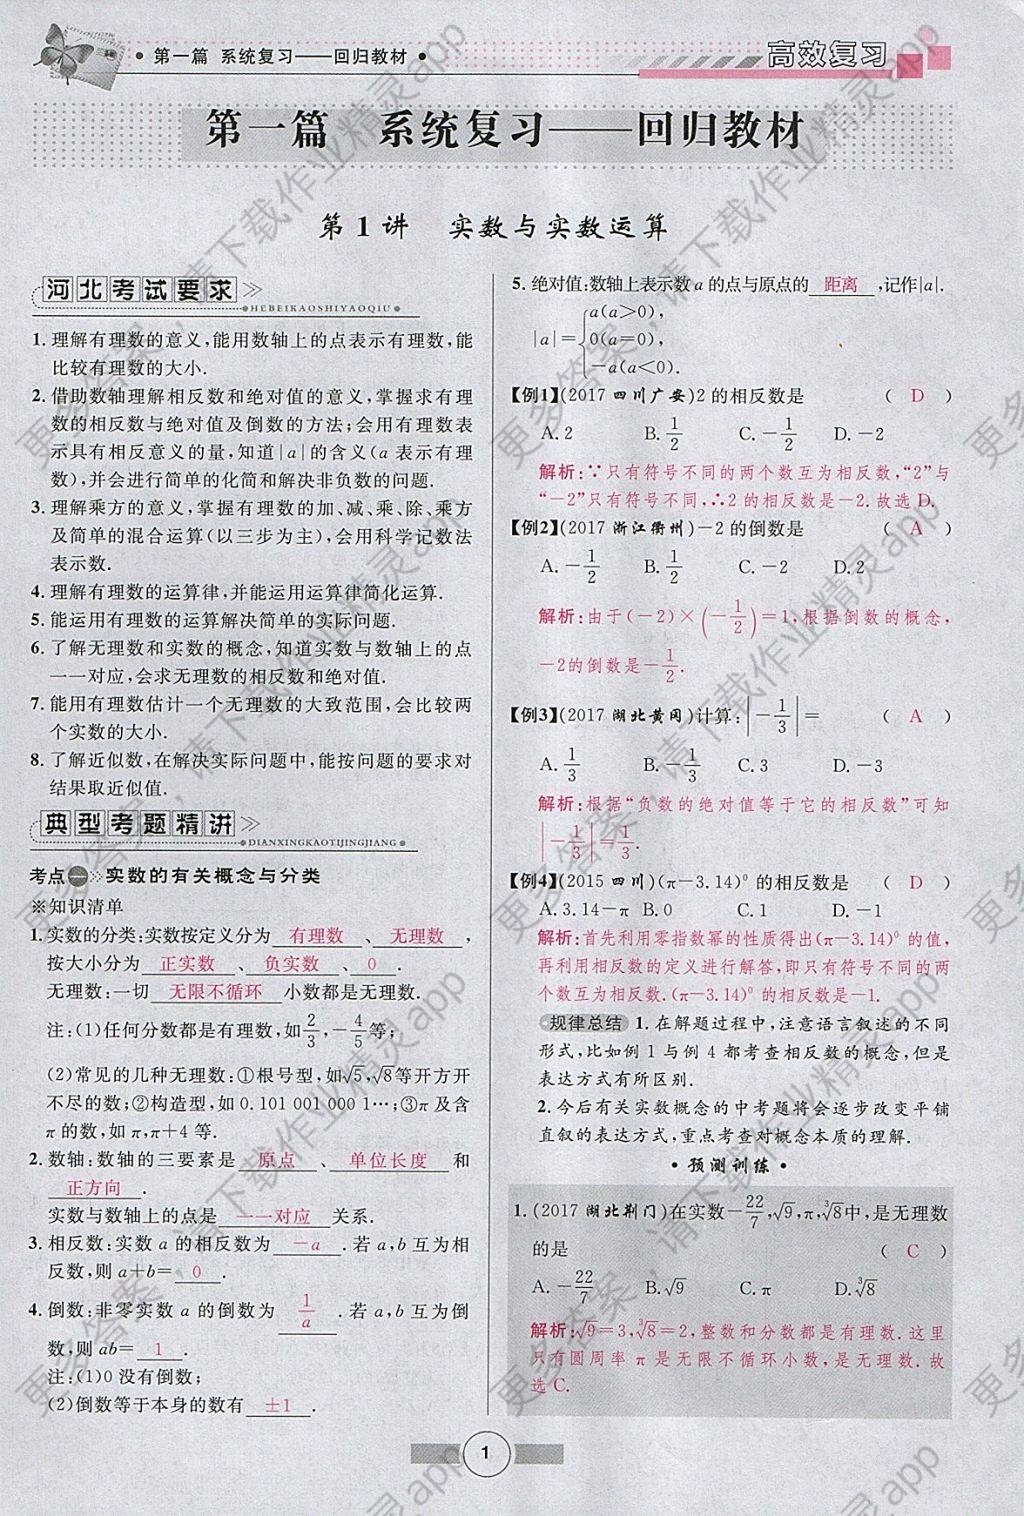 ·第一篇 系统复习——回归教材·
高效复习
第一篇 系统复习——回归教材
第1讲 实数与实数运算
河北考试要求
HEBEIKAOSHIYAOQIU
1. 理解有理数的意义,能用数轴上的点表示有理数,能
比较有理数的大小.
2. 借助数轴理解相反数和绝对值的意义,掌握求有理
数的相反数与绝对值及倒数的方法;会用有理数表
示具有相反意义的量,知道|a|的含义(a 表示有理
数),并会进行简单的化简和解决非负数的问题.
3. 理解乘方的意义,掌握有理数的加、减、乘、除、乘方
及简单的混合运算(以三步为主),会用科学记数法
表示数.
4. 理解有理数的运算律,并能运用运算律简化运算.
5. 能运用有理数的运算解决简单的实际问题.
6. 了解无理数和实数的概念,知道实数与数轴上的点
一一对应,会求无理数的相反数和绝对值.
7. 能用有理数估计一个无理数的大致范围,会比较两
个实数的大小.
8. 了解近似数,在解决实际问题中,能按问题的要求对
结果取近似值.
典型考题精讲
DIANXINGKAOTIJINGJIANG
考点一 实数的有关概念与分类
※知识清单
1. 实数的分类:实数按定义分为 有理数 、 无理数 ,
按大小分为 正实数 、 负实数 、 0 .
无理数:一切 无限不循环 小数都是无理数.
注:(1)任何分数都是有理数,如2/3,-4/5等;
(2)常见的几种无理数:①根号型,如√5,√8等开方开
不尽的数;②构造型,如 0.101 001 000 1…;③π 及含
π 的数,如 π,π+4 等.
2. 数轴:数轴的三要素是 原点 、 单位长度 和
正方向 .
实数与数轴上的点是 一一对应 关系.
3. 相反数:实数 a 的相反数为 -a .若 a,b 互为相
反数,则 a+b= 0 .
4. 倒数:非零实数 a 的倒数为 1/a .若 a,b 互为倒
数,则 ab= 1 .
注:(1)0 没有倒数;
(2)倒数等于本身的数有 ±1 .
5. 绝对值:数轴上表示数 a 的点与原点的 距离 ,记作|a|.
|a|={a(a>0),
0(a=0),
-a(a<0).
【例1】(2017 四川广安)2 的相反数是 ( D )
A. 2 B. 1/2 C. -1/2 D. -2
解析:∵只有符号不同的两个数互为相反数,“2”与
“-2”只有符号不同,∴2 的相反数是-2. 故选 D.
【例2】(2017 浙江衢州)-2 的倒数是 ( A )
A. -1/2 B. 1/2 C. -2 D. 2
解析:由于(-2)×(-1/2)=1,根据倒数的概念,
-2的倒数是-1/2.
【例3】(2017 湖北黄冈)计算:|-1/3|= ( A )
A. 1/3 B. -1/3 C. 3 D. -3
解析:根据“负数的绝对值等于它的相反数”可知
|-1/3|=1/3.
【例4】(2015 四川)(π-3.14)⁰ 的相反数是 ( D )
A. 3.14-π B. 0 C. 1 D. -1
解析:首先利用零指数幂的性质得出(π-3.14)⁰ 的值,
再利用相反数的定义进行解答,即只有符号不同的两
个数互为相反数.(π-3.14)⁰的相反数是-1.
规律总结 1. 在解题过程中,注意语言叙述的不同
形式,比如例 1 与例 4 都考查相反数的概念,但是
表达方式有所区别.
2. 今后有关实数概念的中考题将会逐步改变平铺
直叙的表达方式,重点考查对概念本质的理解.
·预测训练·
1. (2017 湖北荆门)在实数-22/7,√9,π,³√8中,是无理数
的是 ( C )
A. -22/7 B. √9 C. π D. ³√8
解析:√9=3,³√8=2,整数和分数都是有理数. 这里
只有圆周率 π 是无限不循环小数,是无理数. 故
选 C.
1
更多答案,请下载作业精灵app